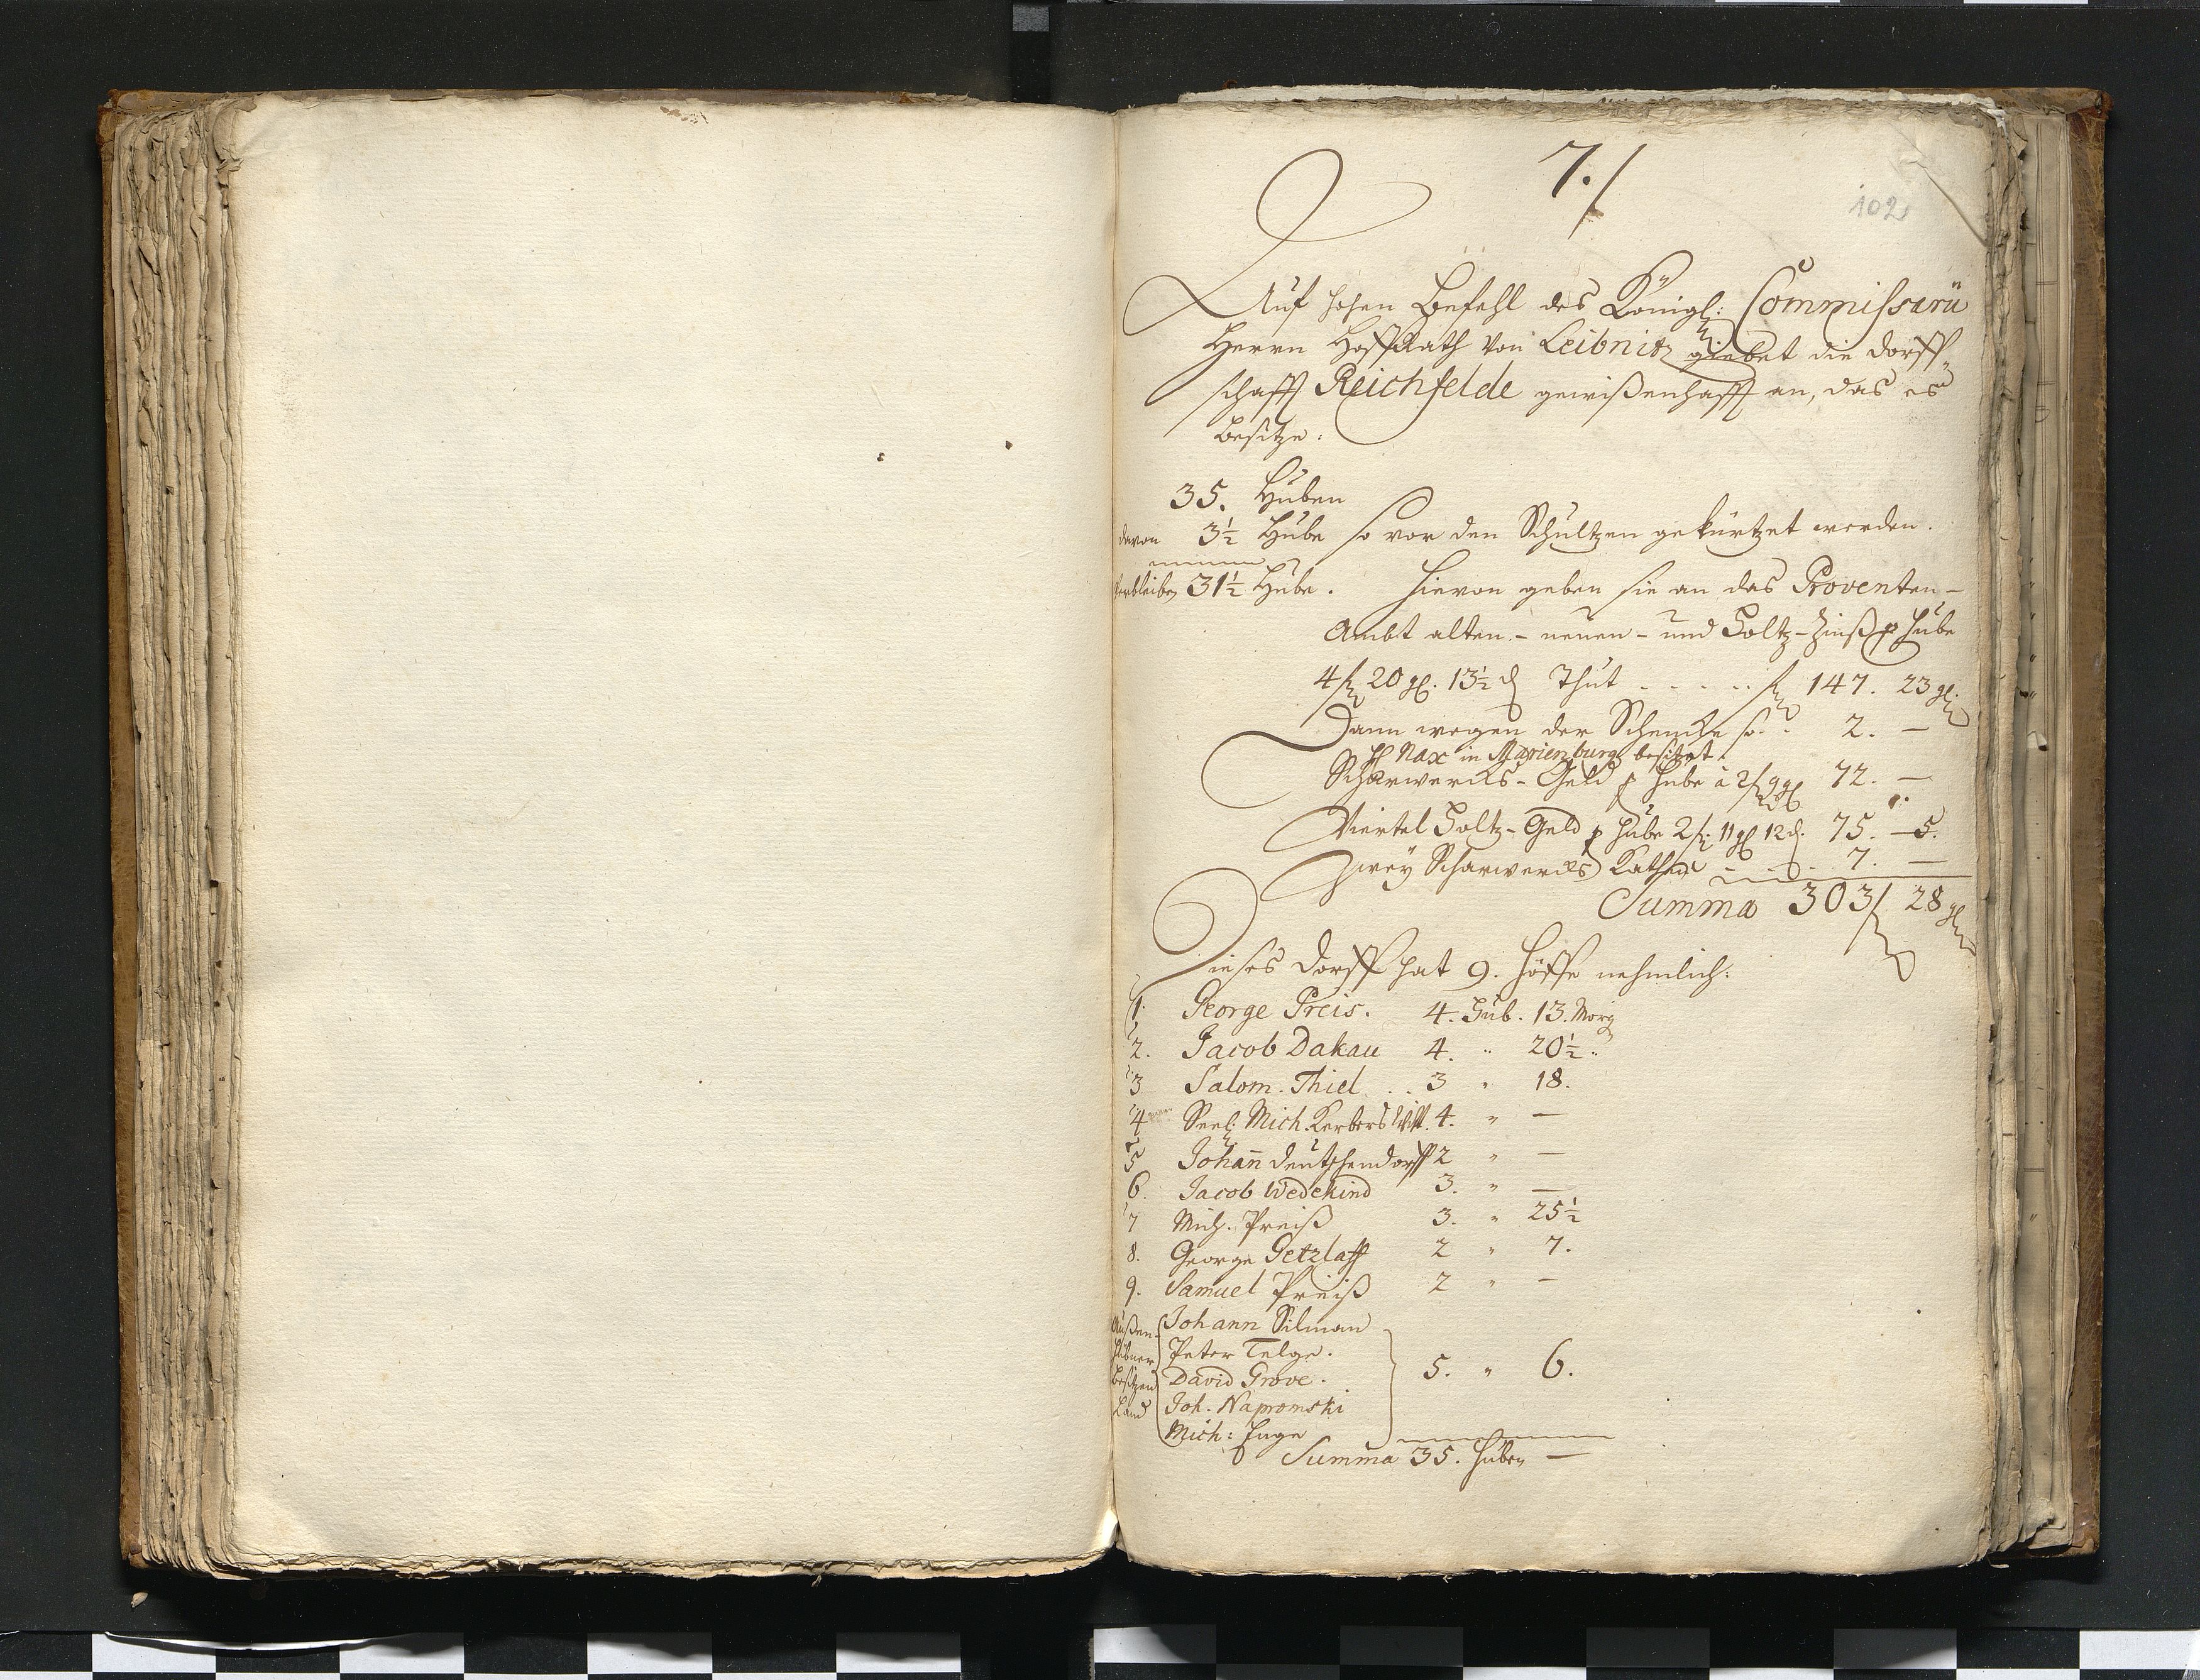 7./
102
Auf hohen Befehl des Königl: Commissarii
Herrn HoffRath von Leibnitz giebet die Dorff-
schafft Reichfelde gewißenhafft an, das es
besitze:
35. Huben
davon 3½ Hube so vor den Schultzen gekürtzet werden.
verbleiben 31½ Hube. Hievon geben sie an das Proventen-
Ambt alten- neuen- und Holtz-Zinß p Hube
4 f 20 gl. 13½ d Thut . . . . . f 147. 23 gl.
Dann wegen der Schencke so . . 2. —
H Nax in Marienburg besitzet.
Scharwercks-Geld p Hube à 2 f 9 gl 72. —
Viertel Holtz-Geld p Hube 2 f: 11 gl 12 d. 75. 5.
Zwey Scharwercks Kathen . . . 7. —
Summa 303 f 28 gl
Dieses Dorff hat 9. Höffe nehmlich:
1. George Preis. 4. Hub. 13. Morg
2. Jacob Dakau 4. " 20½ "
3 Salom. Thiel . . 3 " 18.
4 Seel: Mich. Kerbers Witt. 4. " —
5 Johan̄ Deutschendorff 2 " —
6. Jacob Wedekind 3. " —
7 Mich. Preiß 3. " 25½
8. George Getzlaff 2 " 7.
9. Samuel Preiß 2 " —
Außen- Johann Silman
Hübner Peter Telge.
besitzen David Grove. 5. " 6.
Land Joh. Napromski
Mich: Huge
Summa 35. Huben —